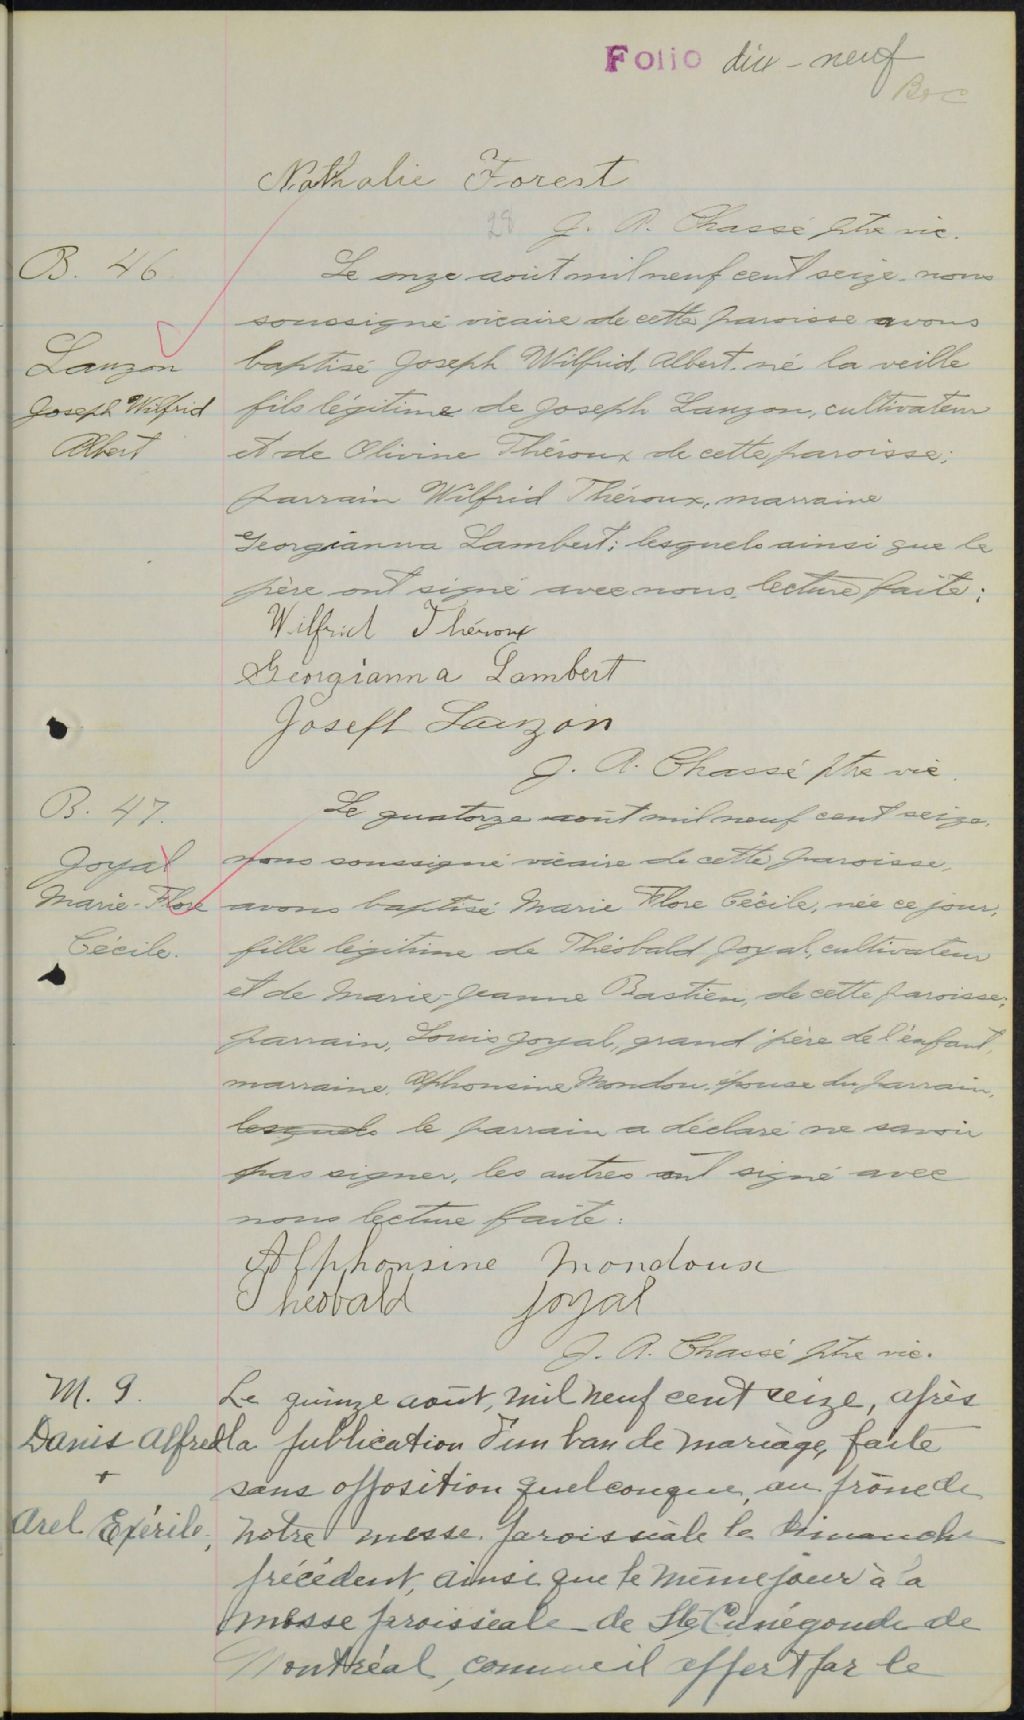 Folio dix-neuf
Nathalie Forest
28
J. A. Chassé ptre vic.
B. 46
Lauzon
Joseph Wilfrid
Albert
Le onze août mil neuf cent seize nous
soussigné vicaire de cette paroisse avons
baptisé Joseph Wilfrid, Albert, né la veille
fils légitime de Joseph Lauzon, cultivateur
et de Olivine Théroux de cette paroisse;
parrain Wilfrid Théroux, marraine
Georgianna Lambert; lesquels ainsi que le
père ont signé avec nous, lecture faite:
Wilfrid Théroux
Georgianna Lambert
Joseph Lauzon
J. A. Chassé ptre vic.
B. 47.
Joyal
Marie-Flore
Cécile.
Le quatorze août mil neuf cent seize,
nous soussigné vicaire de cette paroisse,
avons baptisé Marie Flore Cécile, née ce jour,
fille légitime de Théobald Joyal, cultivateur
et de Marie-Jeanne Bastien, de cette paroisse;
parrain, Louis Joyal, grand'père de l'enfant,
marraine, Alphonsine Mondou, épouse du parrain,
lesquels le parrain a déclaré ne savoir
pas signer, les autres ont signé avec
nous lecture faite:
Alphonsine Mondoux
Théobald Joyal
J. A. Chassé ptre vic.
M. 9.
Danis Alfred
+
Arel Exérile,
Le quinze août, mil neuf cent seize, après
la publication d'un ban de mariage, faite
sans opposition quelconque, au prône de
notre messe paroissiale le dimanche
précédent, ainsi que le même jour à la
messe paroissiale de Ste Cunégonde de
Montréal, comme il appert par le